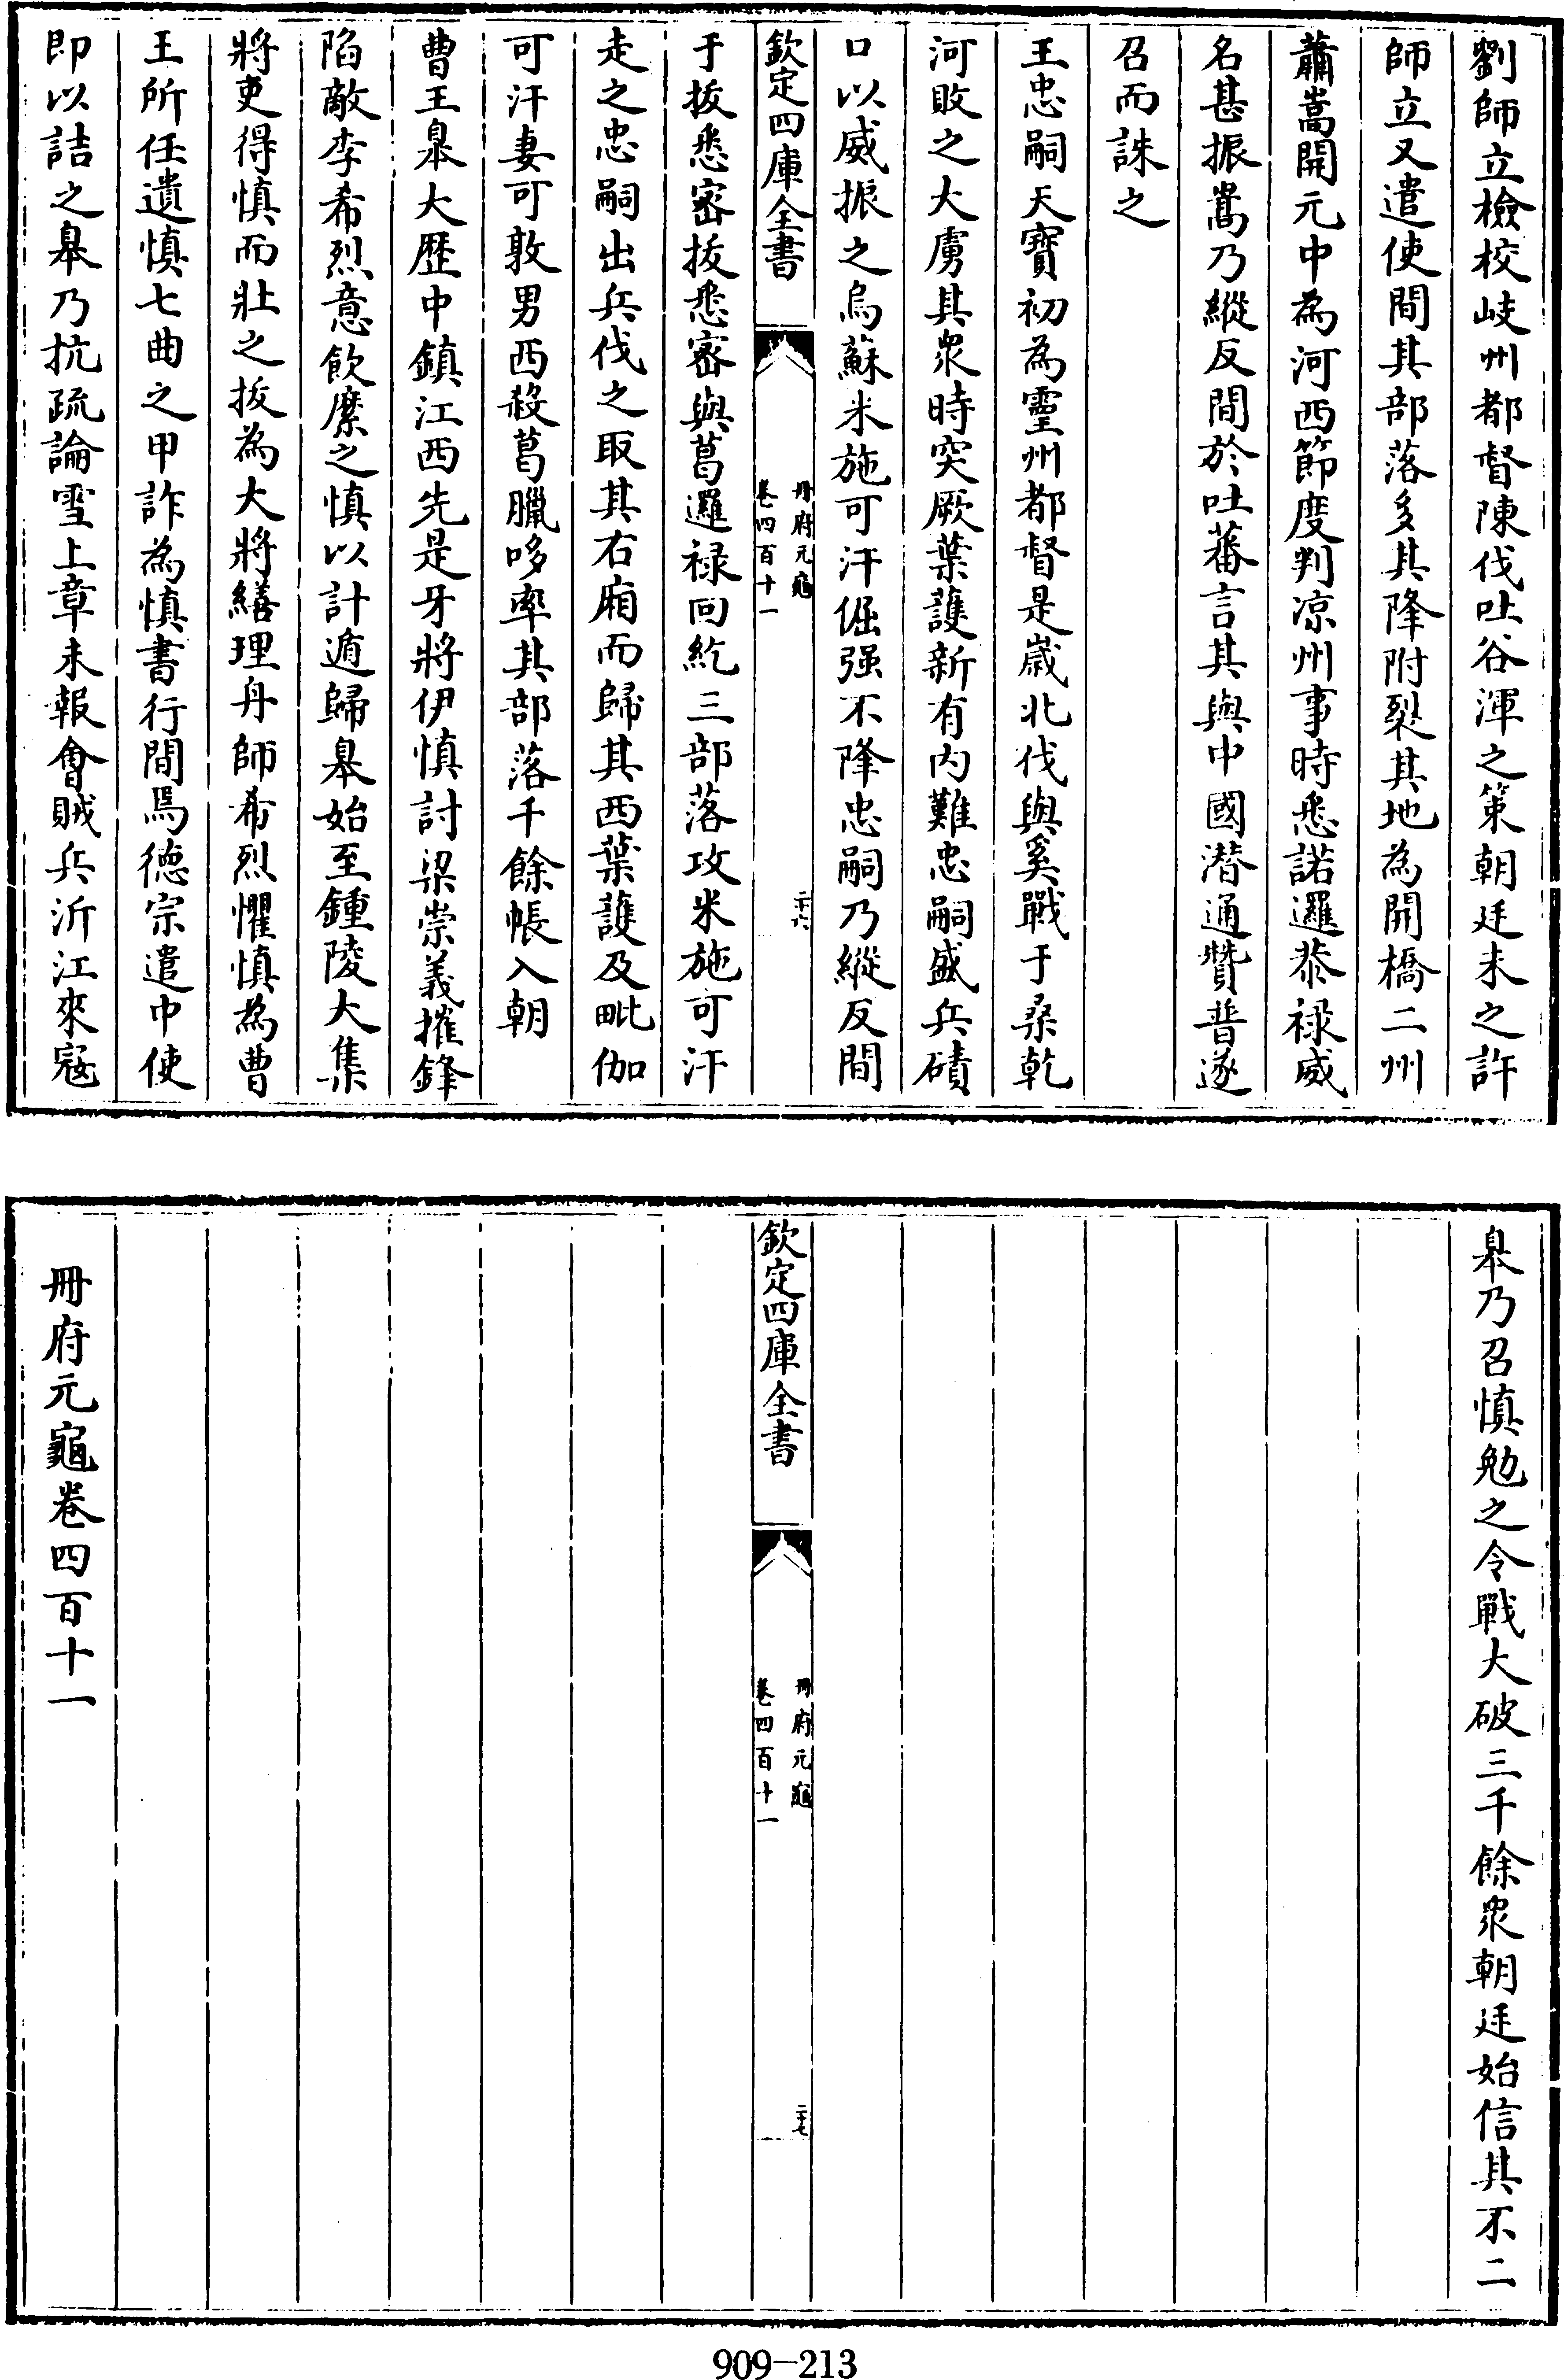 劉師立檢校岐州都督陳伐吐谷渾之策朝廷未之許
師立又遣使間其部落多其降附裂其地為開橋二州
蕭嵩開元中為河西節度判凉州事時悉諾邏恭禄威
名甚振嵩乃縱反間於吐蕃言其與中國潜通贊普遂
召而誅之
王忠嗣天寶初為靈州都督是嵗北伐與奚戰于桑乾
河敗之大虜其衆時突厥葉護新有内難忠嗣盛兵磧
口以威振之烏蘇米施可汗倔强不降忠嗣乃縱反間
欽定四庫全書
冊府元龜
卷四百十一
二十六
于拔悉密拔悉密與葛邏禄回紇三部落攻米施可汗
走之忠嗣出兵伐之取其右厢而歸其西葉護及毗伽
可汗妻可敦男西殺葛臘哆率其部落千餘帳入朝
曹王臯大歴中鎮江西先是牙將伊慎討梁崇義摧鋒
陷敵李希烈意飲縻之慎以計遁歸臯始至鍾陵大集
將吏得慎而壯之拔為大將繕理舟師希烈懼慎為曹
王所任遺慎七曲之甲詐為慎書行間焉德宗遣中使
即以詰之臯乃抗疏論雪上章未報會賊兵沂江來寇
臯乃召慎勉之令戰大破三千餘衆朝廷始信其不二
欽定四庫全書
冊府元龜
卷四百十一
二十七
冊府元龜卷四百十一
909-213